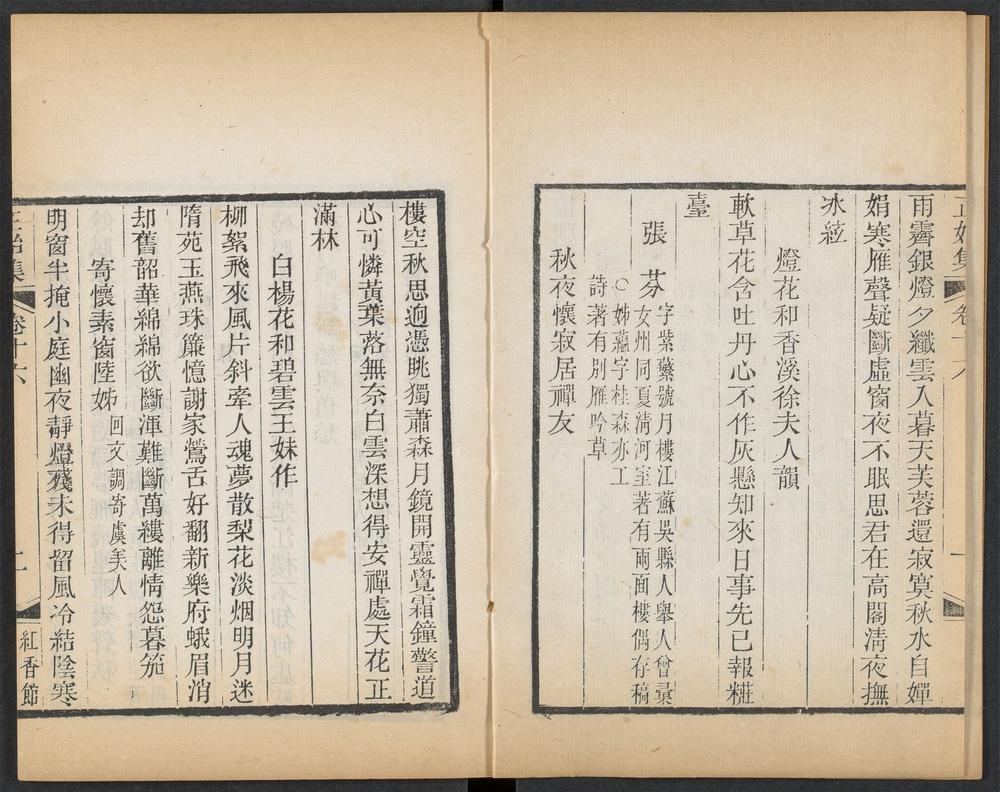 正始集 卷十六 一
雨霽銀燈夕纖雲入暮天芙蓉還寂寞秋水自嬋
娟寒雁聲疑斷虛窗夜不眠思君在高閣淸夜撫
冰絃
燈花和香溪徐夫人韻
軟草花含吐丹心不作灰懸知來日事先已報糚
臺
張芬字紫蘩號月樓江蘇吳縣人舉人曾彚
女州同夏淸河室著有兩面樓偶存稿
○姊蘊字桂森亦工
詩著有別雁吟草
秋夜懷寂居禪友
樓空秋思逈憑眺獨蕭森月鏡開靈覺霜鐘警道
心可憐黃葉落無奈白雲深想得安禪處天花正
滿林
白楊花和碧雲王妹作
柳絮飛來風片斜牽人魂夢散梨花淡烟明月迷
隋苑玉燕珠簾憶謝家鶯舌好翻新樂府蛾眉消
却舊韶華綿綿欲斷渾難斷萬縷離情怨暮笳
寄懷素窗陸姊回文調寄虞美人
明窗半掩小庭幽夜靜燈殘未得留風冷結陰寒
正始集 卷十六 二 紅香館